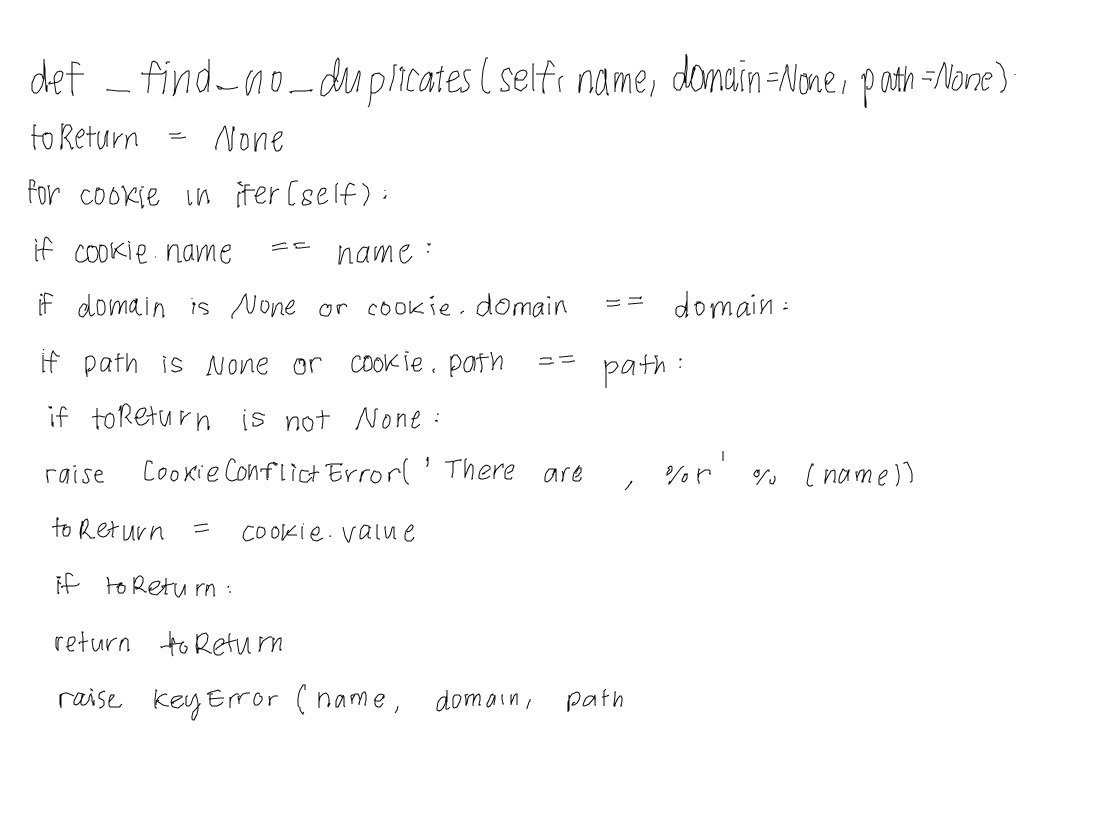 def _find_no_duplicates(self, name, domain=None, path=None)
toReturn = None
for cookie in iter(self):
if cookie.name == name:
if domain is None or cookie.domain == domain:
if path is None or cookie.path == path:
if toReturn is not None:
raise CookieConflictError('There are , %r' % (name))
toReturn = cookie.value
if toReturn:
return toReturn
raise keyError(name, domain, path